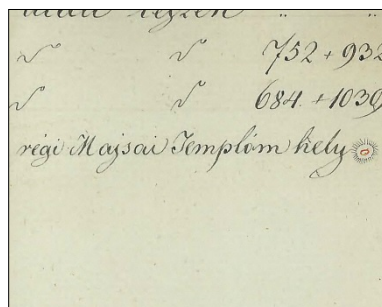 „ „
752 + 932
684. + 1039
régi Majsai Templóm hely